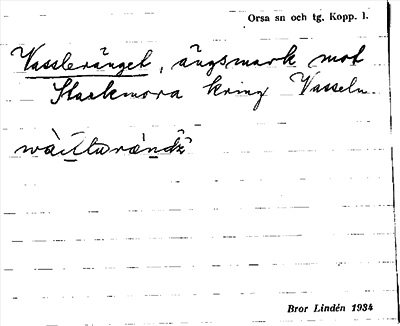 Orsa sn och tg. Kopp. l.
Vassleränget, ängsmark mot
Stackmora kring Vasseln.
Bror Lindén 1934